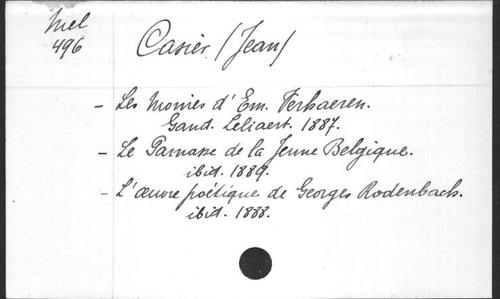 Mel
496
Casier (Jean)
- Les Moines d'Em. Verhaeren.
Gand. Leliaert. 1887.
- Le Parnasse de la Jeune Belgique.
ibid. 1889.
- L'œuvre poétique de Georges Rodenbach.
ibid. 1888.